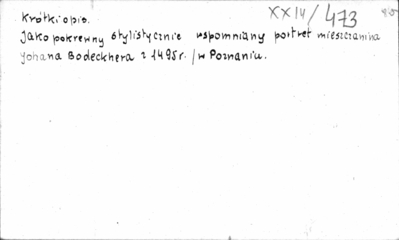 Krótki opis.
XXIV/473
Jako pokrewny stylistycznie wspomniany portret mieszczanina
Johana Bodeckhera z 1495r. /w Poznaniu.